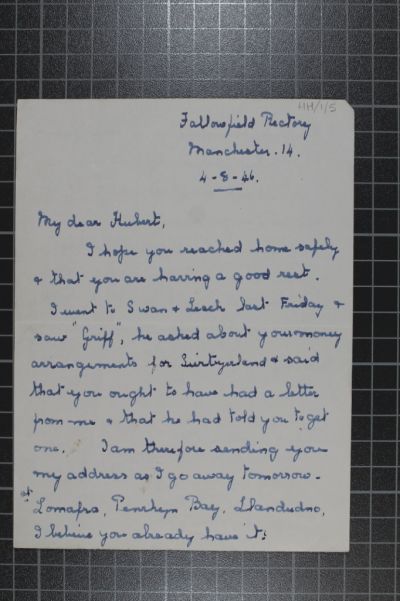 HH/1/5
Fallowfield Rectory
Manchester. 14.
4-8-46.
My dear Hubert,
I hope you reached home safely
& that you are having a good rest.
I went to Swan & Leach last Friday &
saw "Griff", he asked about your money
arrangements for Switzerland & said
that you ought to have had a letter
from me & that he had told you to get
one. I am therefore sending you
my address as I go away tomorrow -
at Penrhyn Bay, Llandudno,
I believe you already have it.